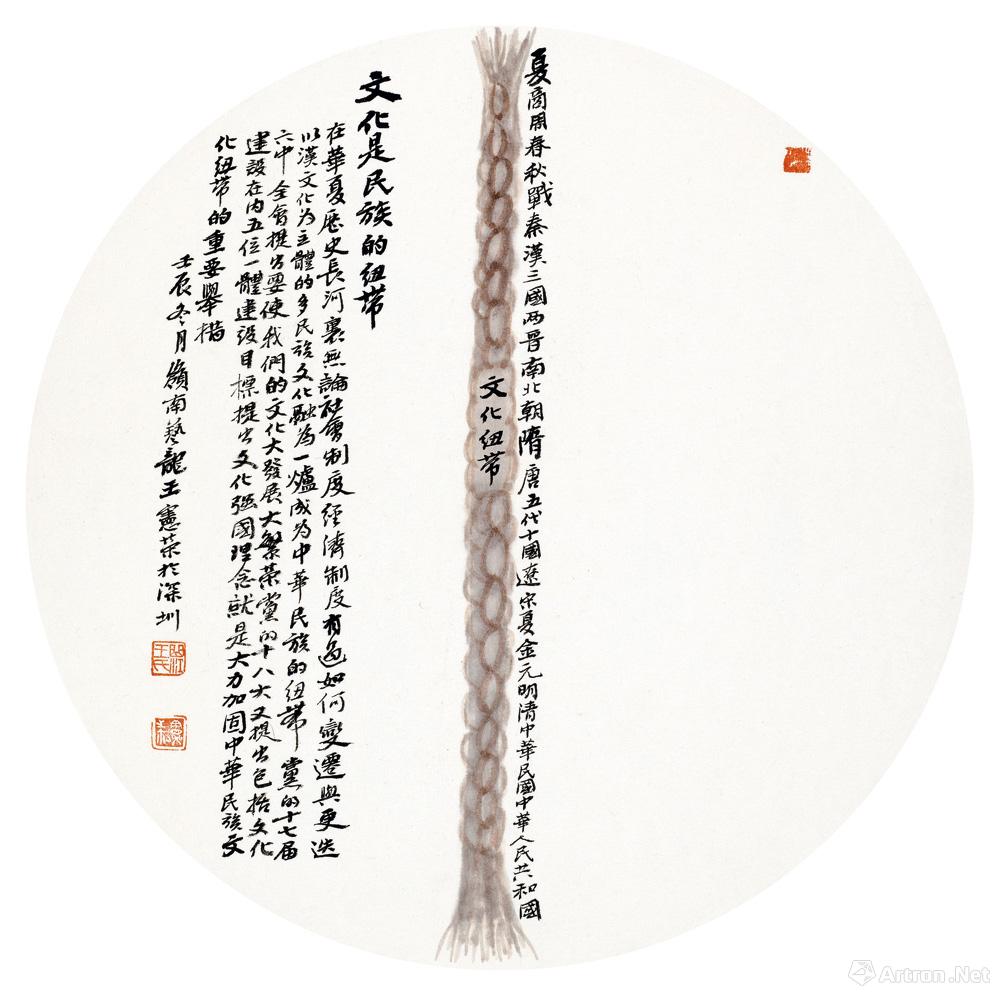 夏商周春秋戰秦漢三國兩晉南北朝隋唐五代十國遼宋夏金元明清中華民國中華人民共和國
文化紐带
文化是民族的紐带
在華夏歷史長河裏無論社會制度經濟制度有過如何變遷與更迭
以漢文化為主體的多民族文化融為一爐成為中華民族的紐带黨的十七届
六中全會提出要使我們的文化大發展大繁荣黨的十八大又提出包括文化
建設在内五位一體建設目標提出文化强國理念就是大力加固中華民族文
化紐带的重要舉措
壬辰冬月嶺南藝龍王憲荣於深圳
Artron.Net